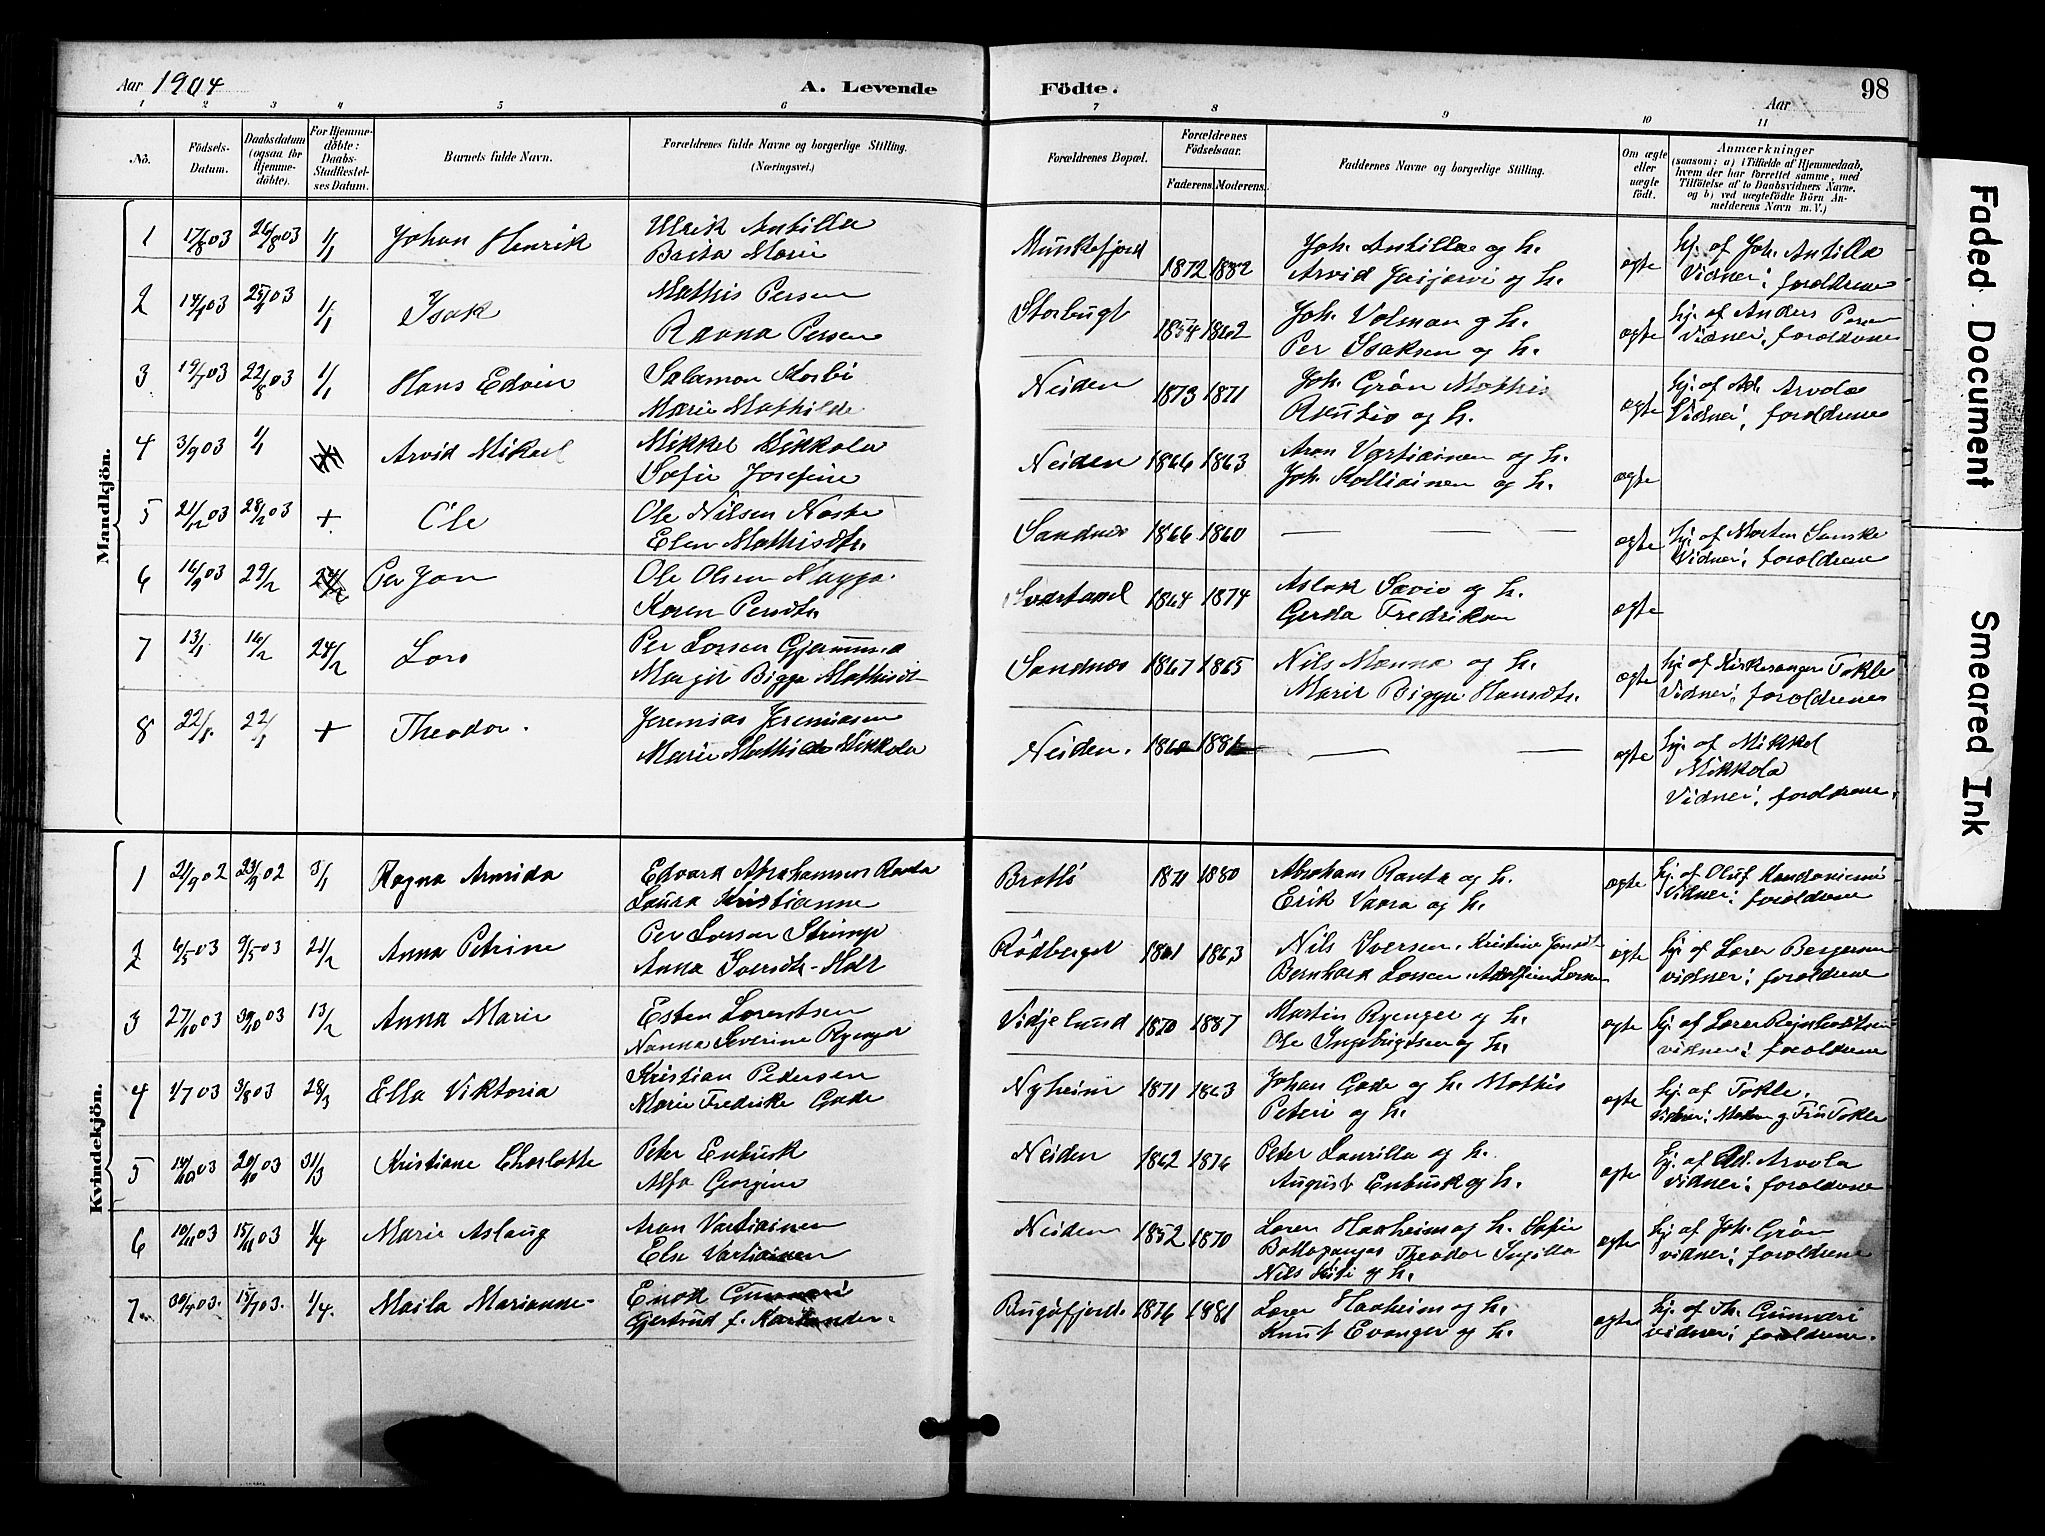 Aar 1904
A. Levende
Födte.
Aar
98
1 2 3 4 5 6 7 8 9 10 11
No.
Födsels-Datum.
Daabsdatum (ogsaa for Hjemme-döbte).
For Hjemme-döbte: Daabs-Stadfæstel-ses Datum.
Barnets fulde Navn.
Forældrenes fulde Navne og borgerlige Stilling. (Næringsvei.)
Forældrenes Bopæl.
Forældrenes Födselsaar.
Faderens. Moderens.
Faddernes Navne og borgerlige Stilling.
Om ægte eller uægte födt.
Anmærkninger
(saasom: a) i Tilfælde af Hjemmedaab,
hvem der har forrettet samme, med
Tilföielse af to Daabsvidners Navne,
og b) ved uægtefödte Börn An-
melderens Navn m. V.)
Mandkjön.
1 17/8 03 26/8 03 1/1 Johan Henrik Ulrik Antilla Munkefjord 1872 1882 Joh. Antilla og h. ægte hj. af Joh. Antilla
Brita Marie Arvid og h. Vidner: forældrene
2 25/4 03 1/1 Isak Mathis Persen Storbugt 1854 1862 Joh. Volman og h. ægte hj. af Anders
Ravna Persen Per Isaksen og h. Vidner: forældrene
3 19/7 03 22/8 03 1/1 Hans Edvin Salamon Korbi Neiden 1873 1871 Joh. Grön Mathis ægte hj. af Ad. Arvola
Marie Mathilde og h. Vidner: forældrene
4 3/9 03 1/1 Arvid Mikael Mikkel Mikkola Neiden 1866 1863 Aron Vartiainen og h. ægte
Sofie Josefine Joh. Koltiainen og h.
5 21/12 03 28/2 03 + Ole Ole Nilsen Sandnes 1866 1860 — — ægte hj. af Morten
Elen Mathisdtr. Vidner: forældrene
6 16/9 03 29/2 Per Jon Ole Olsen 1864 1874 Aslak Savio og h. ægte
Karen Persdtr. Gerda Fredriksen
7 13/1 16/2 24/2 Lars Per Larsen Sandnes 1867 1865 Nils og h. ægte hj. af Kirkesanger Tokle
Margit Bigga Mathisdt Marie Bigga Hansdtr. Vidner: forældrene
8 22/1 + Theodor. Jeremias Jeremiasen Neiden. — — ægte hj. af Mikkel
Marie Mathilde Mikkola Mikkola
Vidner: forældrene.
Kvindekjön.
1 21/9 02 23/9 02 3/1 Ragna Armida Edvard Abrahamsen Ranta Bratli 1871 1880 Abraham Ranta og h. ægte hj. af Oluf
Laura Kristianne Erik Vaara og h. Vidner: forældrene
2 6/5 03 9/5 03 21/2 Anna Petrine Per Larsen Strimp Rödberget 1861 1863 Nils Iversen, Kristine Jonsdt ægte hj. af Lærer Bergersen
Anna Iversdtr. Holt Bernhard Larsen, vidner: forældrene
3 27/10 03 30/10 03 13/2 Anna Marie Esten Lorentsen Vidjelund 1870 1887 Martin Ryenger og h. ægte hj. af Lærer
Nanna Severine Ryenger Ole Ingebrigtsen og h. vidner: forældrene
4 1/7 03 3/8 03 28/3 Ella Viktoria Kristian Pedersen Nyheim 1871 1863 Johan Gade og h. Mathis ægte hj. af Tokle.
Marie Fredrike Gade Peteri og h. Vidner: Moderen og Fru Tokle
5 14/10 03 20/10 03 31/3 Kristiane Charlotte Peter Enbusk Neiden 1862 1876 Peter Laurilla og h. ægte hj. af Ad. Arvola
Alfa Georgine August Enbusk og h. Vidner: forældrene
6 10/11 03 15/11 03 1/4 Marie Aslaug Aron Vartiainen Neiden 1852 1870 Lærer Haaheim og h. Sofie ægte hj. af Joh. Grön
Else Vartiainen Theodor vidner: forældrene
Nils og h.
7 30/4 03. 15/7 03. 1/4. Maila Marianne Enok Gunnari Bugöfjord. 1876 1881 Lærer Haaheim og h. ægte hj. af Th. Gunnari
Gjertrud f. Knut Evanger og h. vidner: forældrene.
Faded Document
Smeared Ink